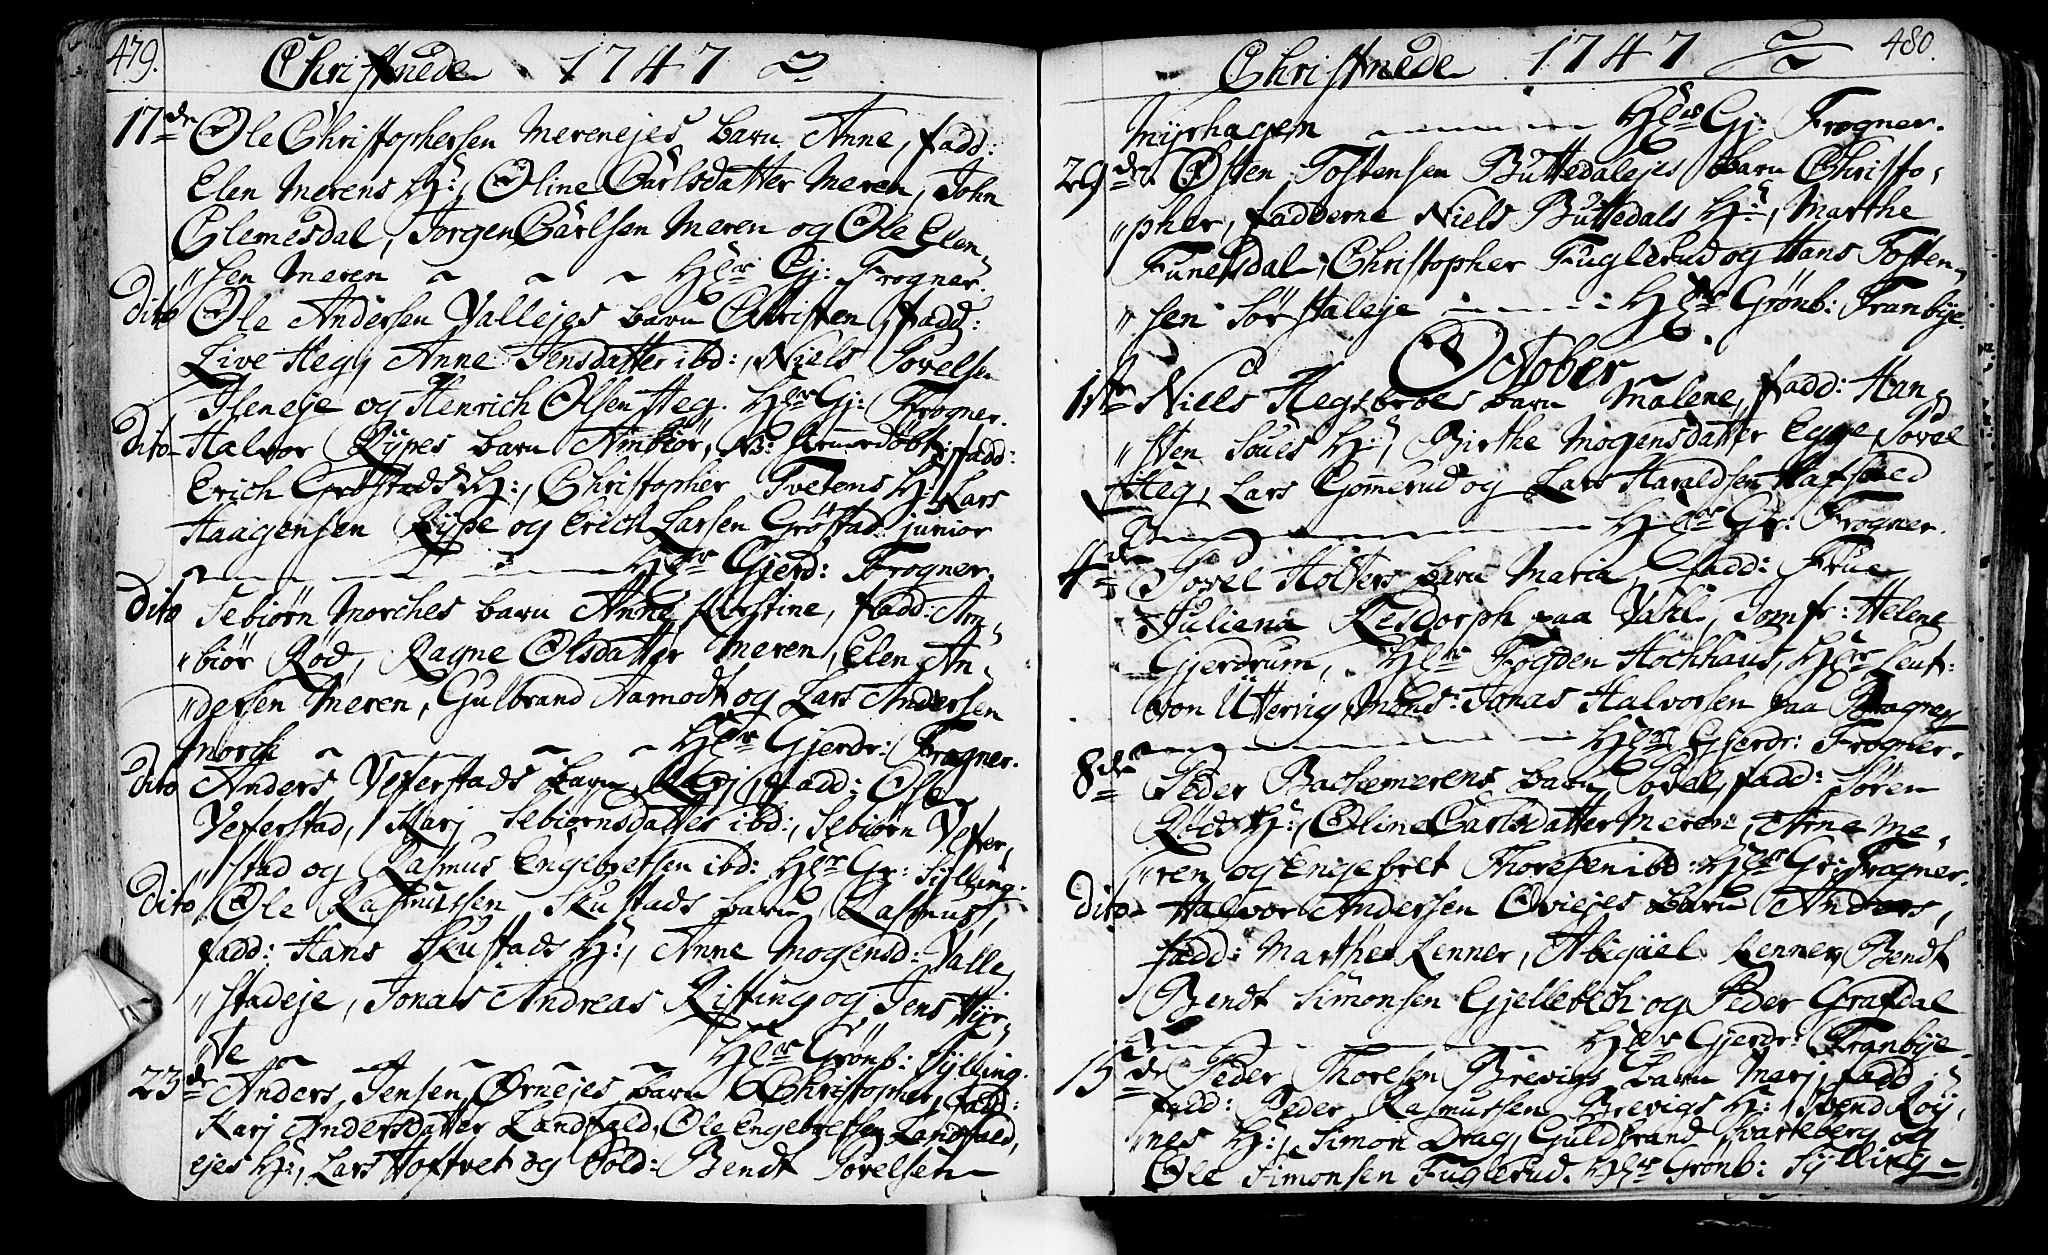 479.
Christnede 1747
17de Ole Christophersen Merenejes barn Anne, fadd:
Elen Merens H:, Oline Carlsdatter Meren, John
Glemesdal, Jørgen Carlsen Meren og Ole Elen-
"sen Meren Hr Gj: Frogner.
Dito Ole Andersen Vallejes barn Christen, fadd:
Live Heg, Anne Jensdatter ibd:, Niels Sovelsen
Heneje og Henrich Olsen Heg. Hr Gj: Frogner.
Dito Halvor Rypes barn Ambiør, fadd:
Erich Grøstads H:, Christopher Tvetens H: Lars
Haagensen Rype og Erich Larsen Grøstad junior
Hr Gjerd: Frogner.
Dito Sebiørn Morches barn Anne Kirstine, fadd: Am-
"biør Rød, Ragne Olsdatter Meren, Elen An-
"dersen Meren, Gulbrand Aamodt og Lars Andersen
morch Hr Gjerdr: Frogner.
Dito Anders Vefferstads barn fadd: Ole
Vefferstad, Karj Sebiørnsdatter ibd:, Sebiørn Veffer-
"stad og Rasmus Engebretsen ibd: Hr Gr: Sylling.
Dito Ole Rasmussen Skustads barn Rasmus,
fadd: Hans Skustads H:, Anne Mogensd: Valle
"stadeje, Jonas Andreas Riffing og Jens Hør-
"te Hr Grønb: Sylling.
23de Anders Jensen Ørnejes barn Christopher, fadd:
Karj Andersdatter Landfald, Ole Engebretsen Landfald,
ejes H:, Lars Hoftvet og Sold: Bendt Sovelsen
480.
Christnede 1747
Myrhagen Hr Gj: Frogner.
29de Østen Tostensen Buttedalejes barn Christo-
"pher, fadderne Niels Buttedals H:, Marthe
Funelsdal, Christopher Fuglerud og Hans Tosten-
"sen Sørstaleje Hr Grønb: Tranbye.
October
1ste Niels Hegsbroes barn Malene, fadd: Han-
"sten Soues H:, Birthe Mogensdatter Egge, Sovel
Heg, Lars Gomerud og Lars Haraldsen Hafsoed
Hr Gr: Frogner.
4de Sovel Holters barn Maria, fadd: Frue
Juliena Resdorph paa Vahl, Jomfr: Helene
Gjerdrum, Hr Fogden Hochhaus, Hr Leut:
von Uttervig, Mons: Jonas Halvorsen paa Bragnes
Hr Gjerdr: Frogner.
8de Peder Bachemerens barn Sovel, fadd: Sören
Røds H:, Oline Carlsdatter Meren, Arne Me-
"ren og Engebret Thoresen ibd: Hr Gr: Frogner.
Dito Halvor Andersen Oviejes barn Anders,
fadd: Marthe Lenner, Abigael Lenner, Bendt
Bendt Simonsen Gjellebech og Peder Grafdal
Hr Gjerdr: Tranbye
15de Peder Thoresen Brevigs barn Marj, fadd:
fadd: Peder Rasmussen Brevigs H:, Svend Røy-
"nes H:, Simon Drag, Guldbrand Svarteberg og
Ole Simonsen Fuglerud. Hr Grønb: Sylling